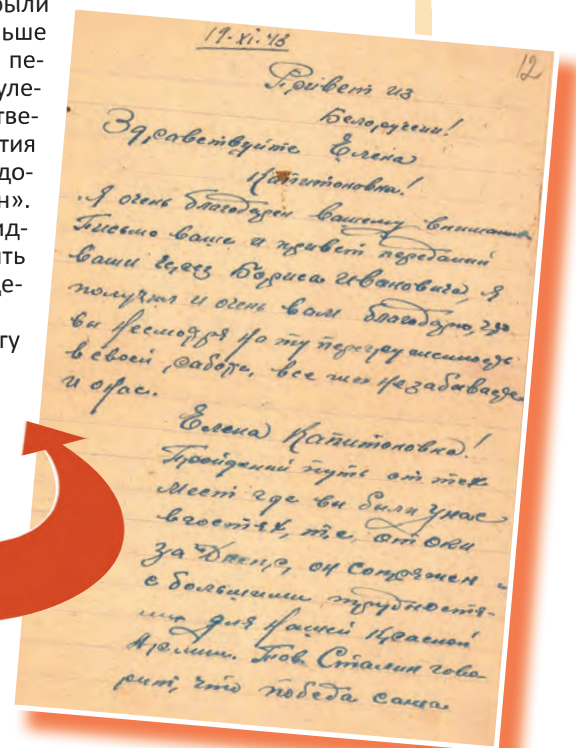 были
ьше
пе-
уле-
тве-
тия
до-
н».
ид-
ить
де-
гу
19-XI-43
12
Привет из
Белоруссии!
Здравствуйте Елена
Капитоновна!
Я очень благодарен вашему внимание
Письмо ваше и привет переданий
Вами через Бориса Ивановича, я
получил и очень вам благодарно, что
вы несмотря на ту перегруженность
в своей работе, все же незабываете
и о нас.
Елена Капитоновна!
Пройдений путь от тех
мест где вы были унас
в гостях, т.е. от Оки
за Днепр, он сопряжен
с большими трудностя-
ми для нашей Красной
Армии. Тов. Сталин гово-
рит, что победа сама